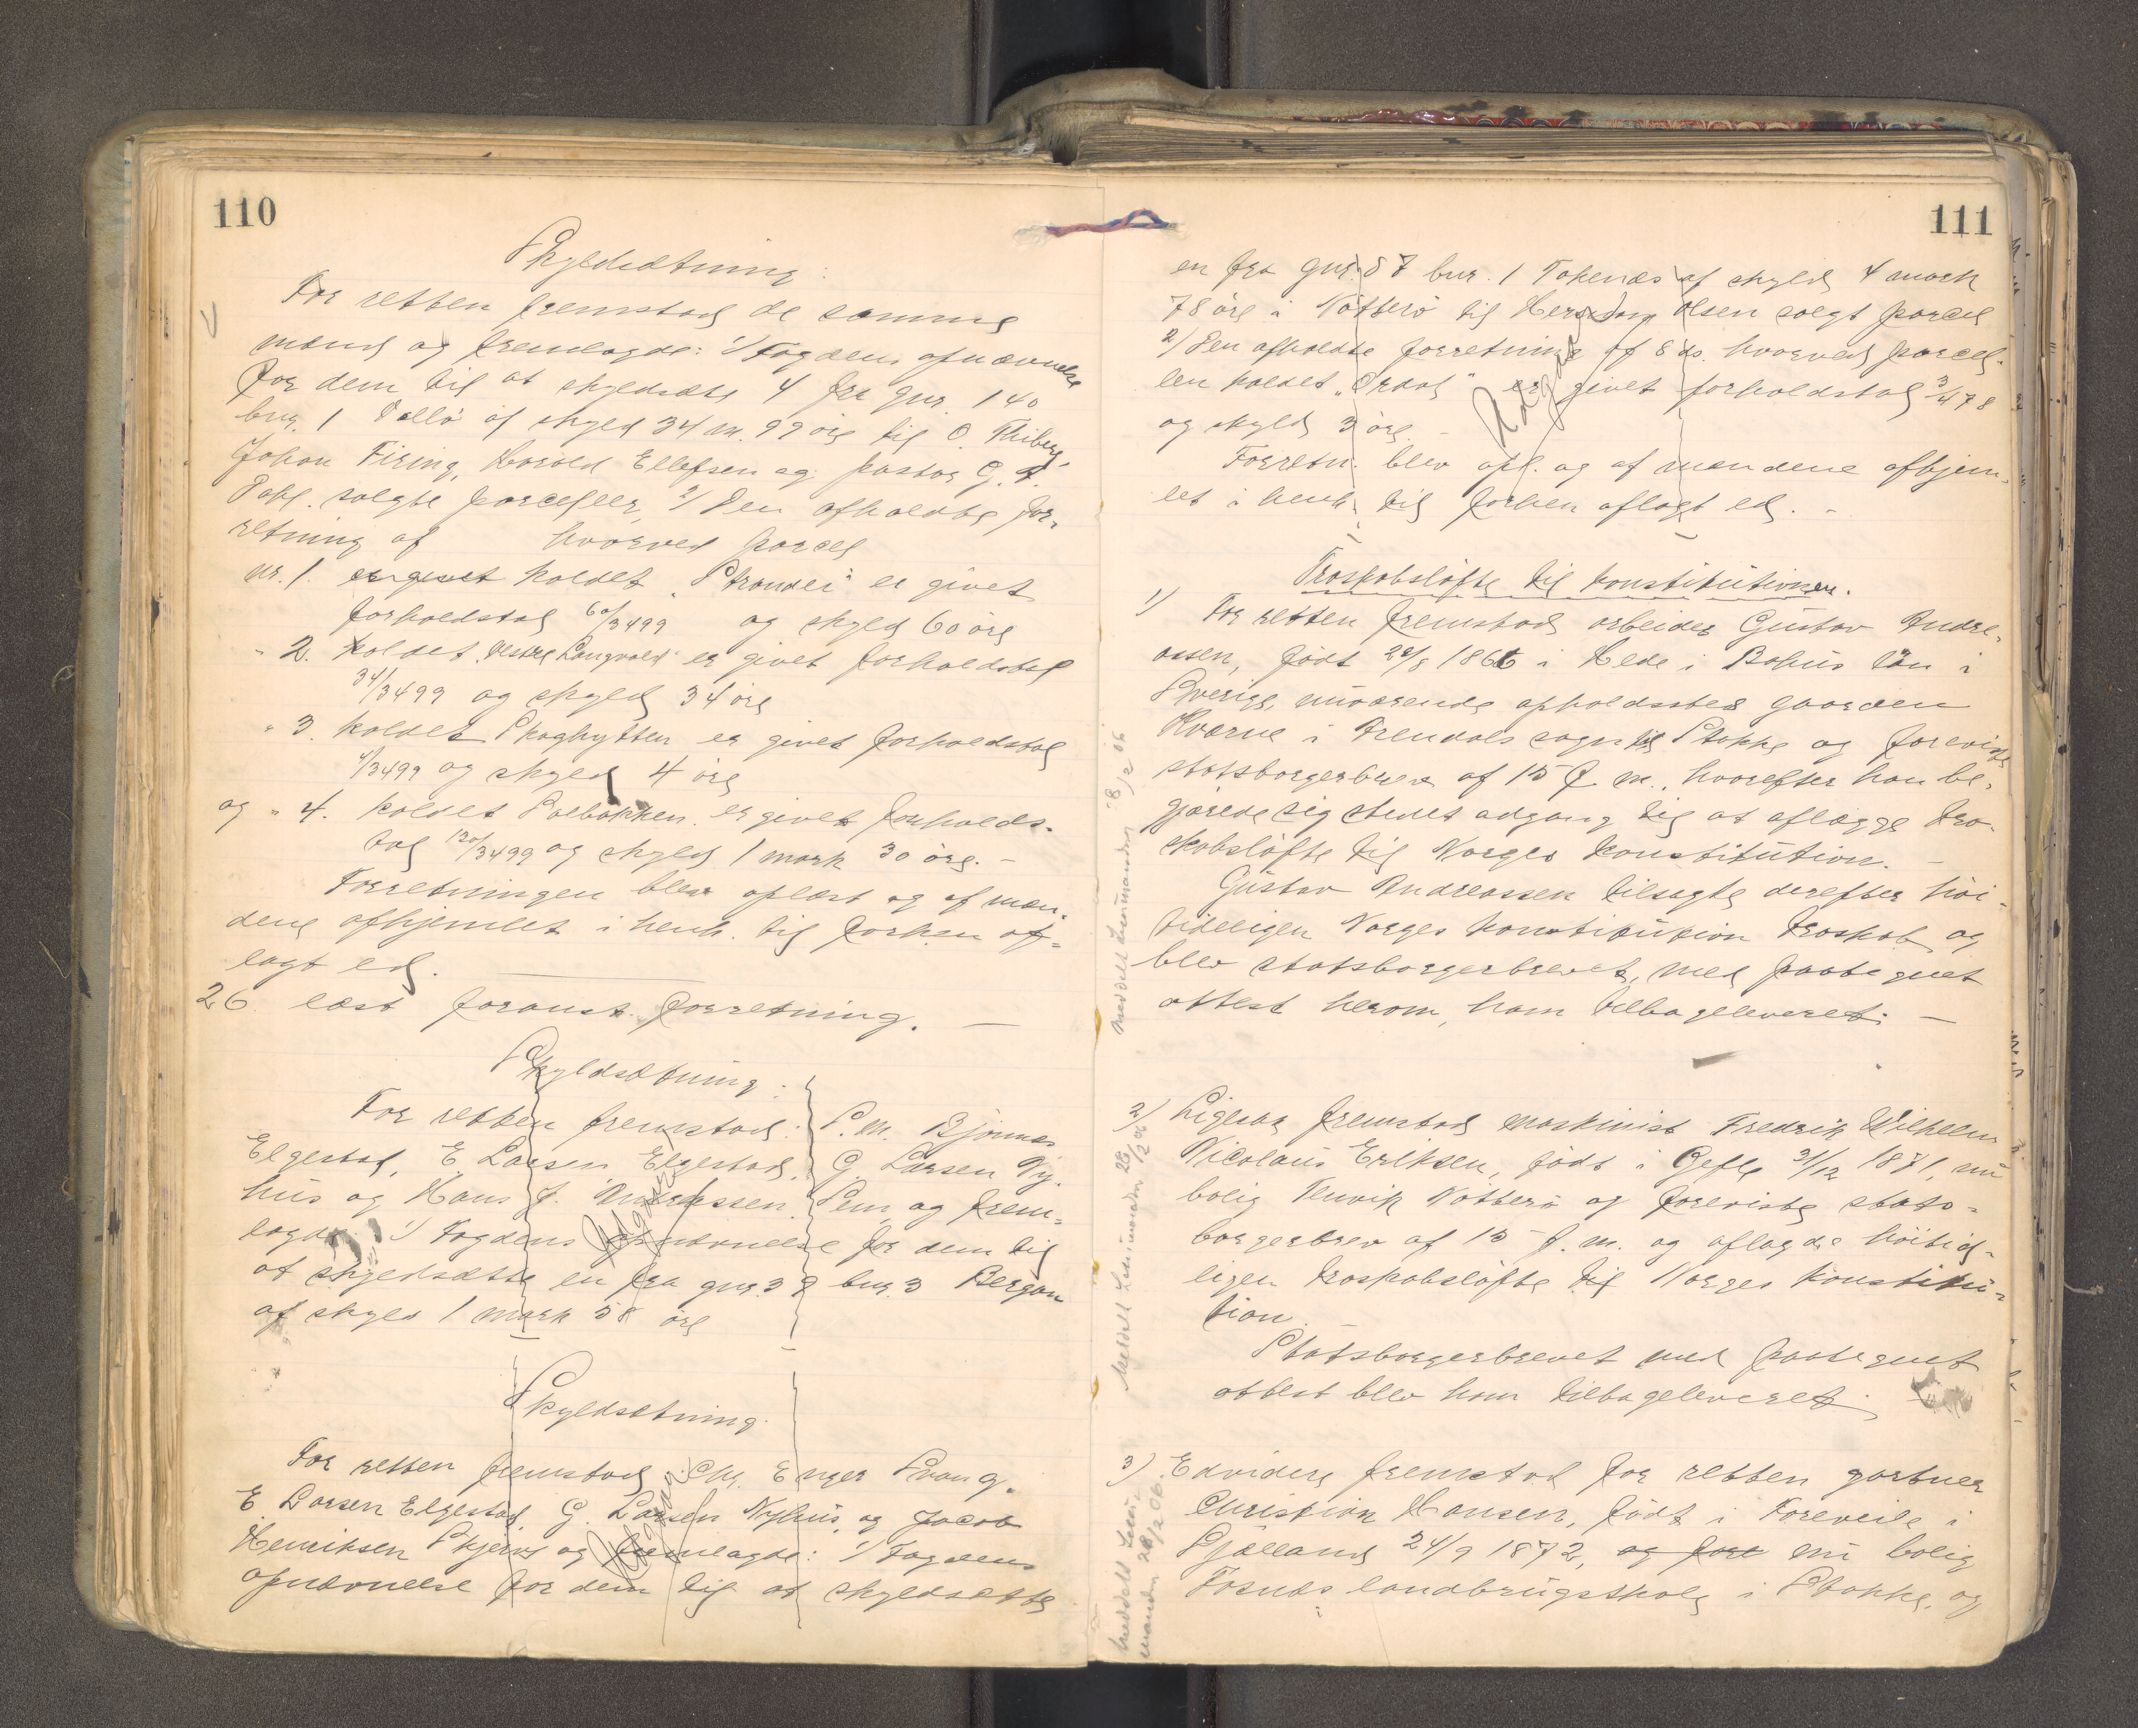 110
Skyldsætning.
For retten fremstod de samme
mænd og fremlagde: 1/ Fogdens opnævnelse
for dem til at skyldsætte 4 fra gnr. 140
bnr. 1 Vallö af skyld 34 m. 99 öre til O. Thiberg,
Johan Firing, Harald Ellefsen og pastor G. A.
Dahl solgte parceller, 2/ Den afholdte for-
retning af hvorved parcel
nr. 1. er givet kaldet "Strandei" er givet
forholdstal 60/3499 og skyld 60 öre
" 2. kaldet "Vestre Langvold" er givet forholdstal
34/3499 og skyld 34 öre
" 3. kaldet Skoghytten er givet forholdstal
4/3499 og skyld 4 öre
og " 4. kaldet Solbakken er givet forholds-
tal 130/3499 og skyld 1 mark 30 öre. -
Forretningen blev oplæst og af mæn-
dene afhjemlet i henh. til forhen af-
lagt ed.
26. læst foranst. forretning. -
Skyldsætning.
For retten fremstod: S. M. Björnnes
Elgestad, E. Larsen Elgestad, G. Larsen Ny-
hus og Hans J. Andreassen Sem, og frem-
lagde 1/ Fogdens opnævnelse for dem til
Udgaar
at skyldsætte en fra gnr. 39 bnr. 3 Bergan
af skyld 1 mark 58 öre
Skyldsætning.
For retten fremstod Chr. Enger Svang.
E Larsen Elgestad, G. Larsen Nyhus, og Jacob
Henriksen Skjerve og fremlagde: 1/ Fogdens
Udgaar
opnævnelse for dem til at skyldsætte
111
en fra gnr. 87 bnr. 1 Tokenæs af skyld 4 mark
78 öre i Nötterö til Herman Olsen solgt parcel
2/ Den afholdte forretning af 8 ds. hvorved parcel-
len kaldet "Ordal" er givet forholdstal 3/478
Udgaar
og skyld 3 öre. -
Forretn. blev opl. og af mændene afhjem-
let i henh. til forhen aflagt ed. -
Troskabslöfte til konstitutionen.
1) For retten fremstod arbeider Gustav Andre-
assen, födt 29/8 1866 i Hede i Bohus län i
Sverige, nuværende opholdssted gaarden
Kværne i Arendals sogn til Stokke og foreviste
statsborgerbrev af 15 f. m., hvorefter han be-
gjærede sig stedet adgang til at aflægge tro-
skabslöfte til Norges konstitution. -
Gustav Andreassen tilsagte derefter höi-
tideligen Norges konstitution troskab, og
blev statsborgerbrevet, med paategnet
attest herom, ham tilbageleveret. -
meddelt Lensmanden 28/2 06.
2) Ligesaa fremstod maskinist Fredrik Wilhelm
Nicolaus Eriksen, födt i Gefle 3/12 1871, nu
bolig Tenvik Nötterö og foreviste stats-
borgerbrev af 15 f. m. og aflagde höitid-
ligen troskabslöfte til Norges konstitu-
tion.
Statsborgerbrevet med paategnet
attest blev ham tilbageleveret.
Meddelt Lensmanden 28/2 06
3) Endvidere fremstod for retten gartner
Christian Hansen, födt i Foreveile i
Sjælland 24/9 1872, og fore nu bolig
Fosnæs landbrugsskole i Stokke, og
Meddelt Lens-
manden 28/2 06.